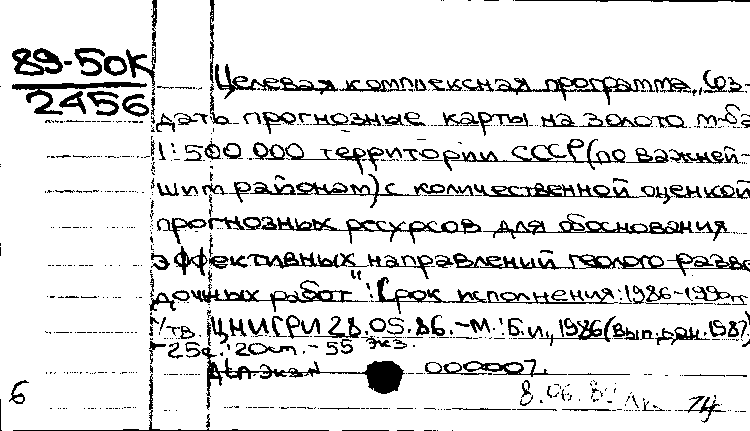 89-50К
2456
Целевая комплексная программа „Соз-
дать прогнозные карты на золото м-ба
1:500 000 территории СССР (по важней-
шим районам) с количественной оценкой
прогнозных ресурсов для обоснования
эффективных направлений геолого-разве
дочных работ": Срок исполнения: 1986-1990гг
/утв. ЦНИГРИ 28.05.86. - М.: Б.и., 1986 (Вып.дан. 1987)
25с.: 20см. - 55 экз.
Деп. экз. № 000007.
6
8.06.89